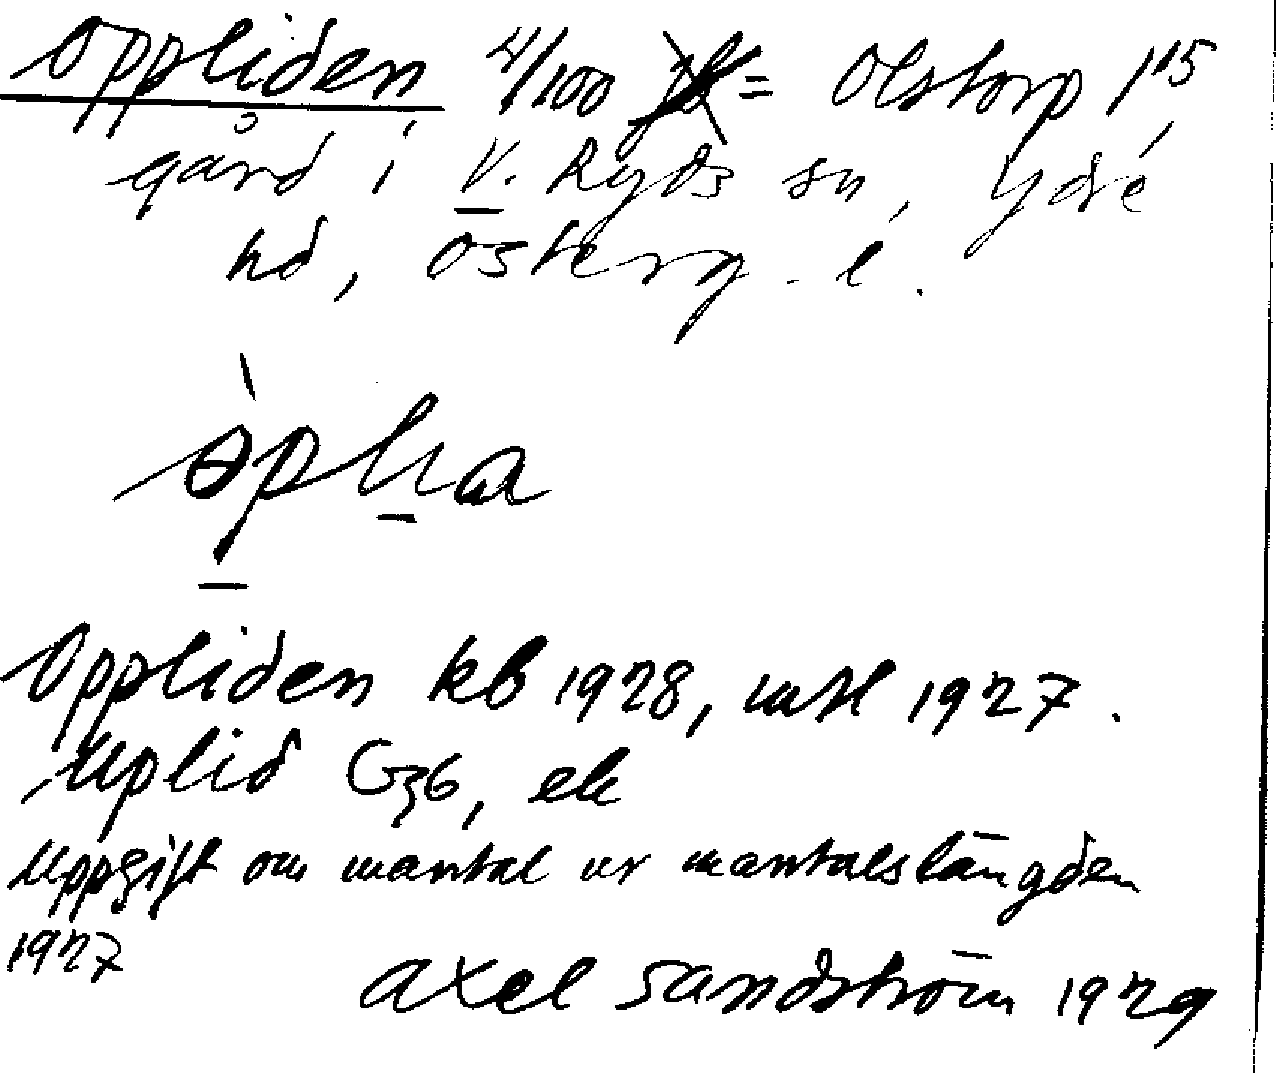 Oppliden 4/100 = Olstorp 1¹⁵
gård i V. Ryds sn, Ydre
hd, Österg. l.
Oppliden kb 1928, mtl 1927.
Uplid G36, ek
Uppgift om mantal ur mantalslängden
1927
Axel Sandström 1929